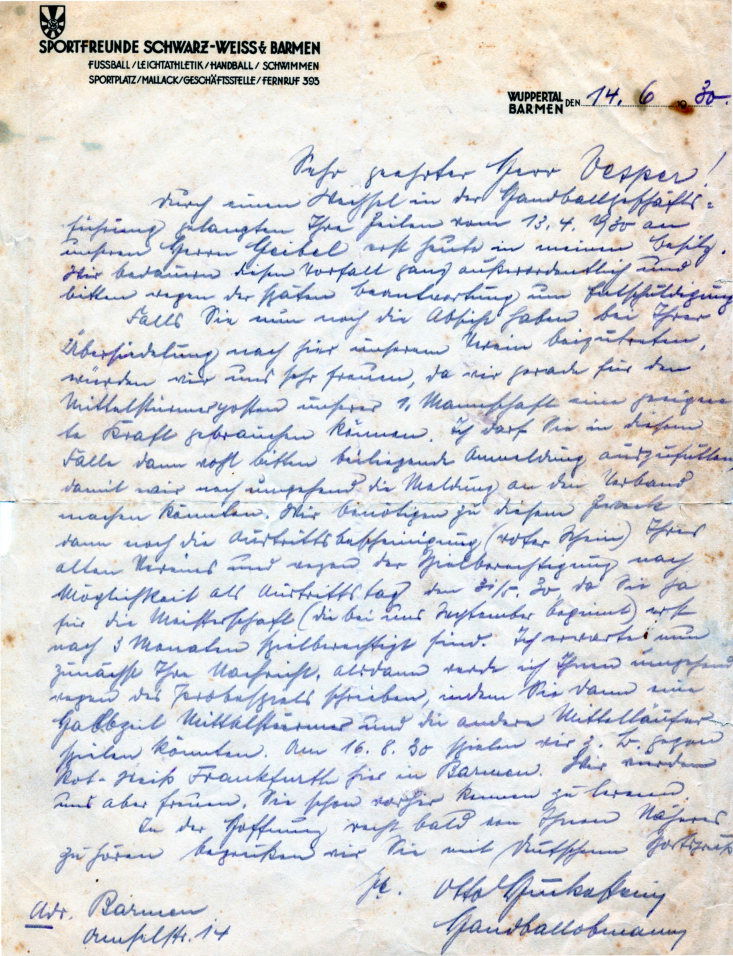 SPORTFREUNDE SCHWARZ-WEISS E BARMEN
FUSSBALL / LEICHTATHLETIK / HANDBALL / SCHWIMMEN
SPORTPLATZ / MALLACK / GESCHÄFTSSTELLE / FERNRUF 393
WUPPERTAL
BARMEN DEN 14. 6. 1930.
Sehr geehrter Herr Vesper!
Durch einen Wechsel in der Handballgeschäfts-
führung gelangten Ihre Zeilen vom 13.4.1930 an
unseren Herrn Geibel erst heute in meinen Besitz.
Wir bedauern diesen Vorfall ganz außerordentlich und
bitten wegen der späten Beantwortung um Entschuldigung
Falls Sie nun noch die Absicht haben bei Ihrer
Übersiedelung nach hier unserem Verein beizutreten,
würden wir uns sehr freuen, da wir gerade für den
Mittelstürmerposten unserer 1. Mannschaft eine geeigne-
te Kraft gebrauchen können. Ich darf Sie in diesem
Falle dann wohl bitten beiliegende Anmeldung auszufüllen,
damit wir noch umgehend die Meldung an den Verband
machen könnten. Wir benötigen zu diesem Zweck
dann noch die Austrittsbescheinigung (roter Schein) Ihres
alten Vereins und wegen der Spielberechtigung nach
Möglichkeit als Austrittstag den 31/5. 30 da Sie ja
für die Meisterschaft (die bei uns September beginnt) erst
nach 3 Monaten spielberechtigt sind. Ich erwarte nun
zunächst Ihre Nachricht, alsdann werde ich Ihnen umgehend
wegen des Probespiels schreiben, indem Sie dann eine
Halbzeit Mittelstürmer und die andere Mittelläufer
spielen könnten. Am 16.8.30 spielen wir z. B. gegen
Rot-Weiß Frankfurth hier in Barmen. Wir würden
uns aber freuen, Sie schon vorher kennen zu lernen.
In der Hoffnung recht bald von Ihnen Näheres
zu hören begrüßen wir Sie mit Deutschem Sportgruß
Otto
Handballobmann
Adr. Barmen
Amselstr. 14